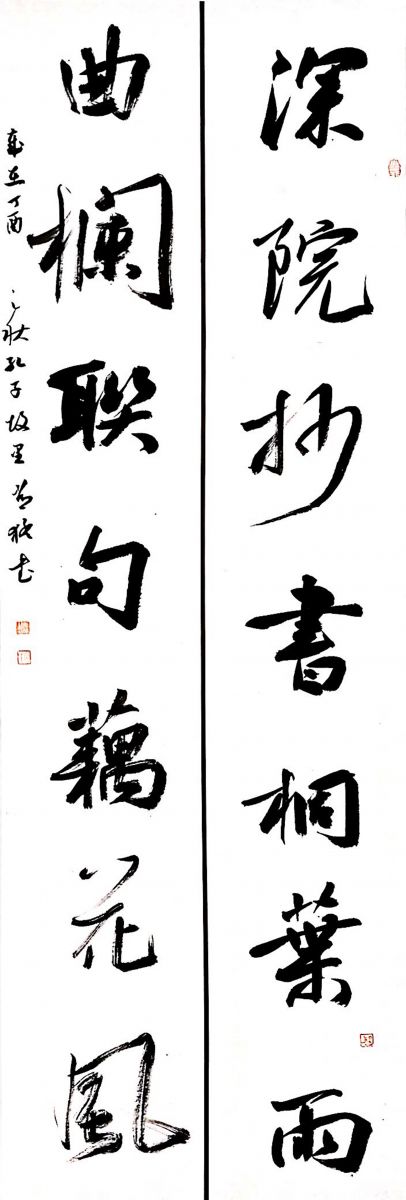 深院抄書桐葉雨
曲欄聯句藕花風
歲在丁酉
之秋孔子故里